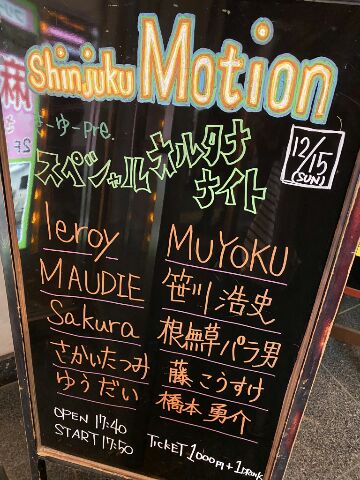 Shinjuku Motion
さーゆーpre.
スペシャルオルタナ
ナイト
12/15
(SUN)
leroy
MAUDIE
Sakura
さかいたつみ
ゆうだい
MUYOKU
笹川浩史
根無草パラ男
藤こうすけ
橋本勇介
OPEN 17:40
START 17:50
TICKET 1000円+1DRINK